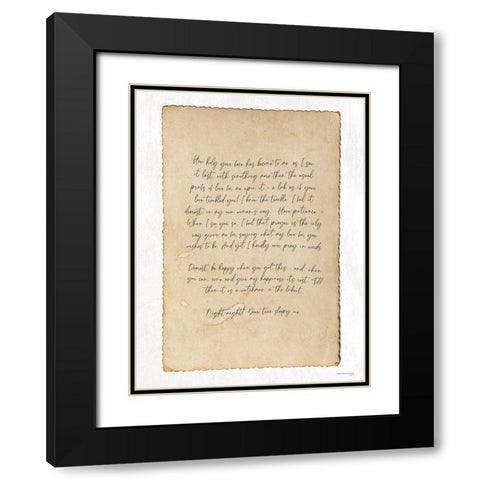 How holy your love has become to me as I saw
it last, with something more than the usual
proofs of love on me upon it - a look as if your
love troubled you! I know the trouble. I feel it
dearest, in my own woman's way. Have patience -
When I see you so, I feel that prayer is the only
way given me for saying what my love for you
wishes to be. And yet I hardly ever pray in words.
Dearest, be happy when you get this: and when
you can, come and give my happiness its rest. Till
then it is a watchman on the lookout.
Night-night! Your true sleepy one